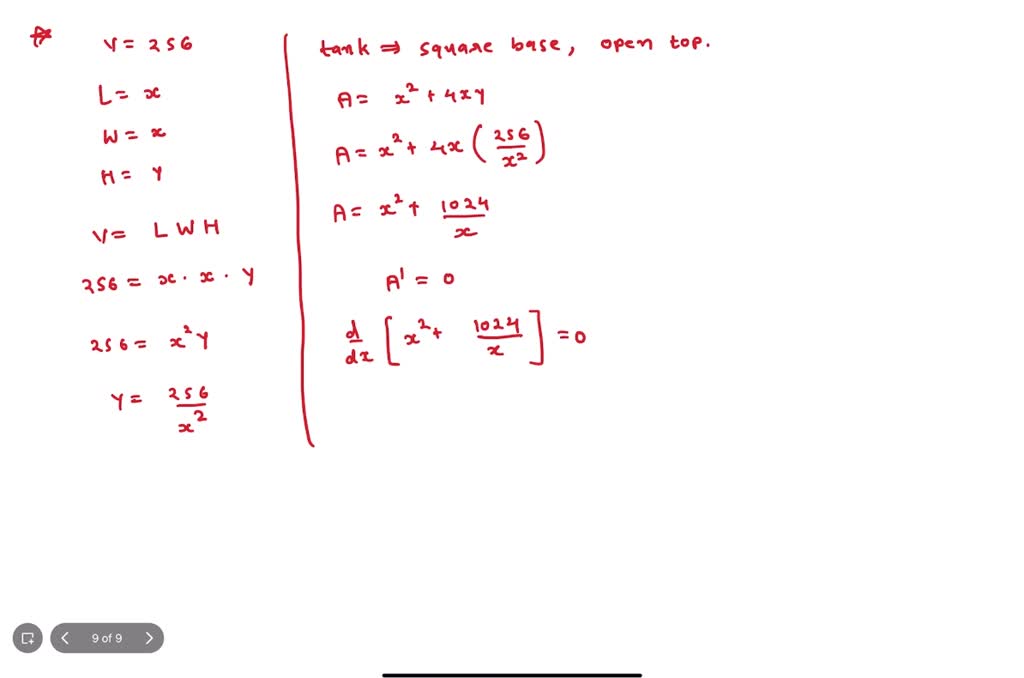 V = 256
L = x
W = x
H = y
V = L W H
256 = x · x · y
256 = x² y
y = 256/x²
tank ⇒ square base, open top.
A = x² + 4xy
A = x² + 4x (256/x²)
A = x² + 1024/x
A' = 0
d/dx [x² + 1024/x] = 0
9 of 9